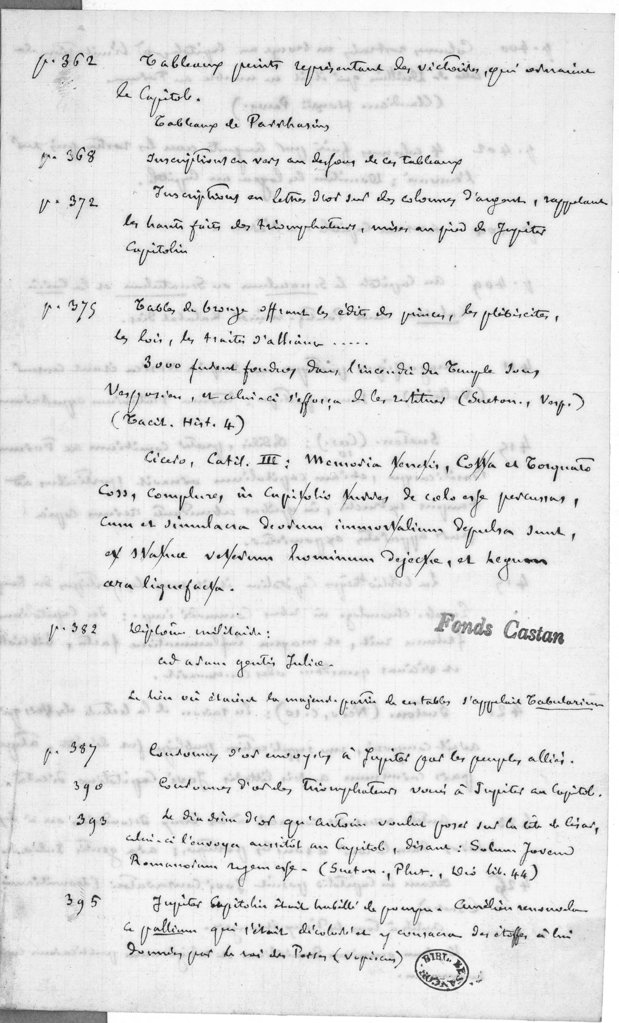 p. 362 Tableaux peints représentant les victoires, qui ornaient
le Capitole.
Tableaux de Parrhasius
p. 368 Inscriptions en vers au dessous de ces tableaux
p. 372 Inscriptions en lettres d'or sur des colonnes d'argent, rappelant
les hauts faits des triomphateurs, mises au pied de Jupiter
Capitolin
p. 375 Tables de bronze offrant les édits des princes, les plébiscites,
les lois, les traités d'alliance .....
3000 furent fondues dans l'incendie du Temple sous
Vespasien, et celui-ci s'efforça de les restituer (Sueton., Vesp.)
(Tacit. Hist. 4)
Cicero, Catil. III : Memoria tenetis, Cotta et Torquato
Coss, complures in Capitolio turres de cœlo esse percussas,
cum et simulacra deorum immortalium depulsa sunt,
et statuæ veterum hominum dejectæ, et legum
æra liquefacta.
p. 382 Diplôme militaire :
ad aram gentis Juliæ.
Fonds Castan
Le lieu où étaient la majeure partie de ces tables s'appelait Tabularium
p. 387 Couronnes d'or envoyées à Jupiter par les peuples alliés.
390 Couronnes d'or des Triomphateurs vouées à Jupiter au Capitole.
393 Le diadème d'or qu'Antoine voulut poser sur la tête de César,
celui-ci l'envoya aussitôt au Capitole, disant : Solum Jovem
Romanorum regem esse. (Sueton., Plut., Dio lib. 44)
395 Jupiter Capitolin était habillé de pourpre. Aurélien renouvela
ce pallium qui s'était décoloré et y consacra des étoffes à lui
données par le roi des Perses (Vopiscus)
BIBL. BESANÇON